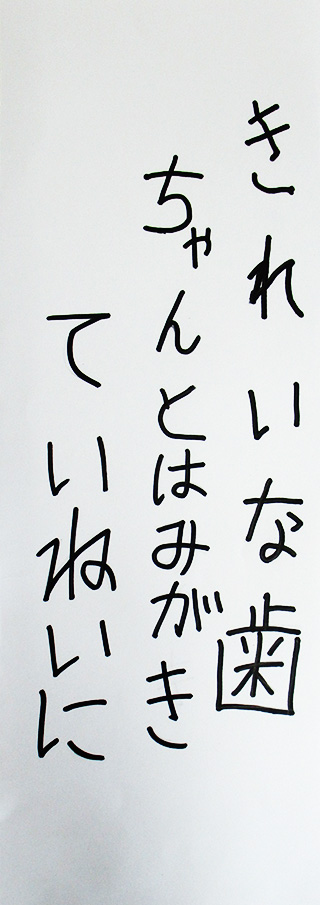 きれいな歯
ちゃんとはみがき
ていねいに